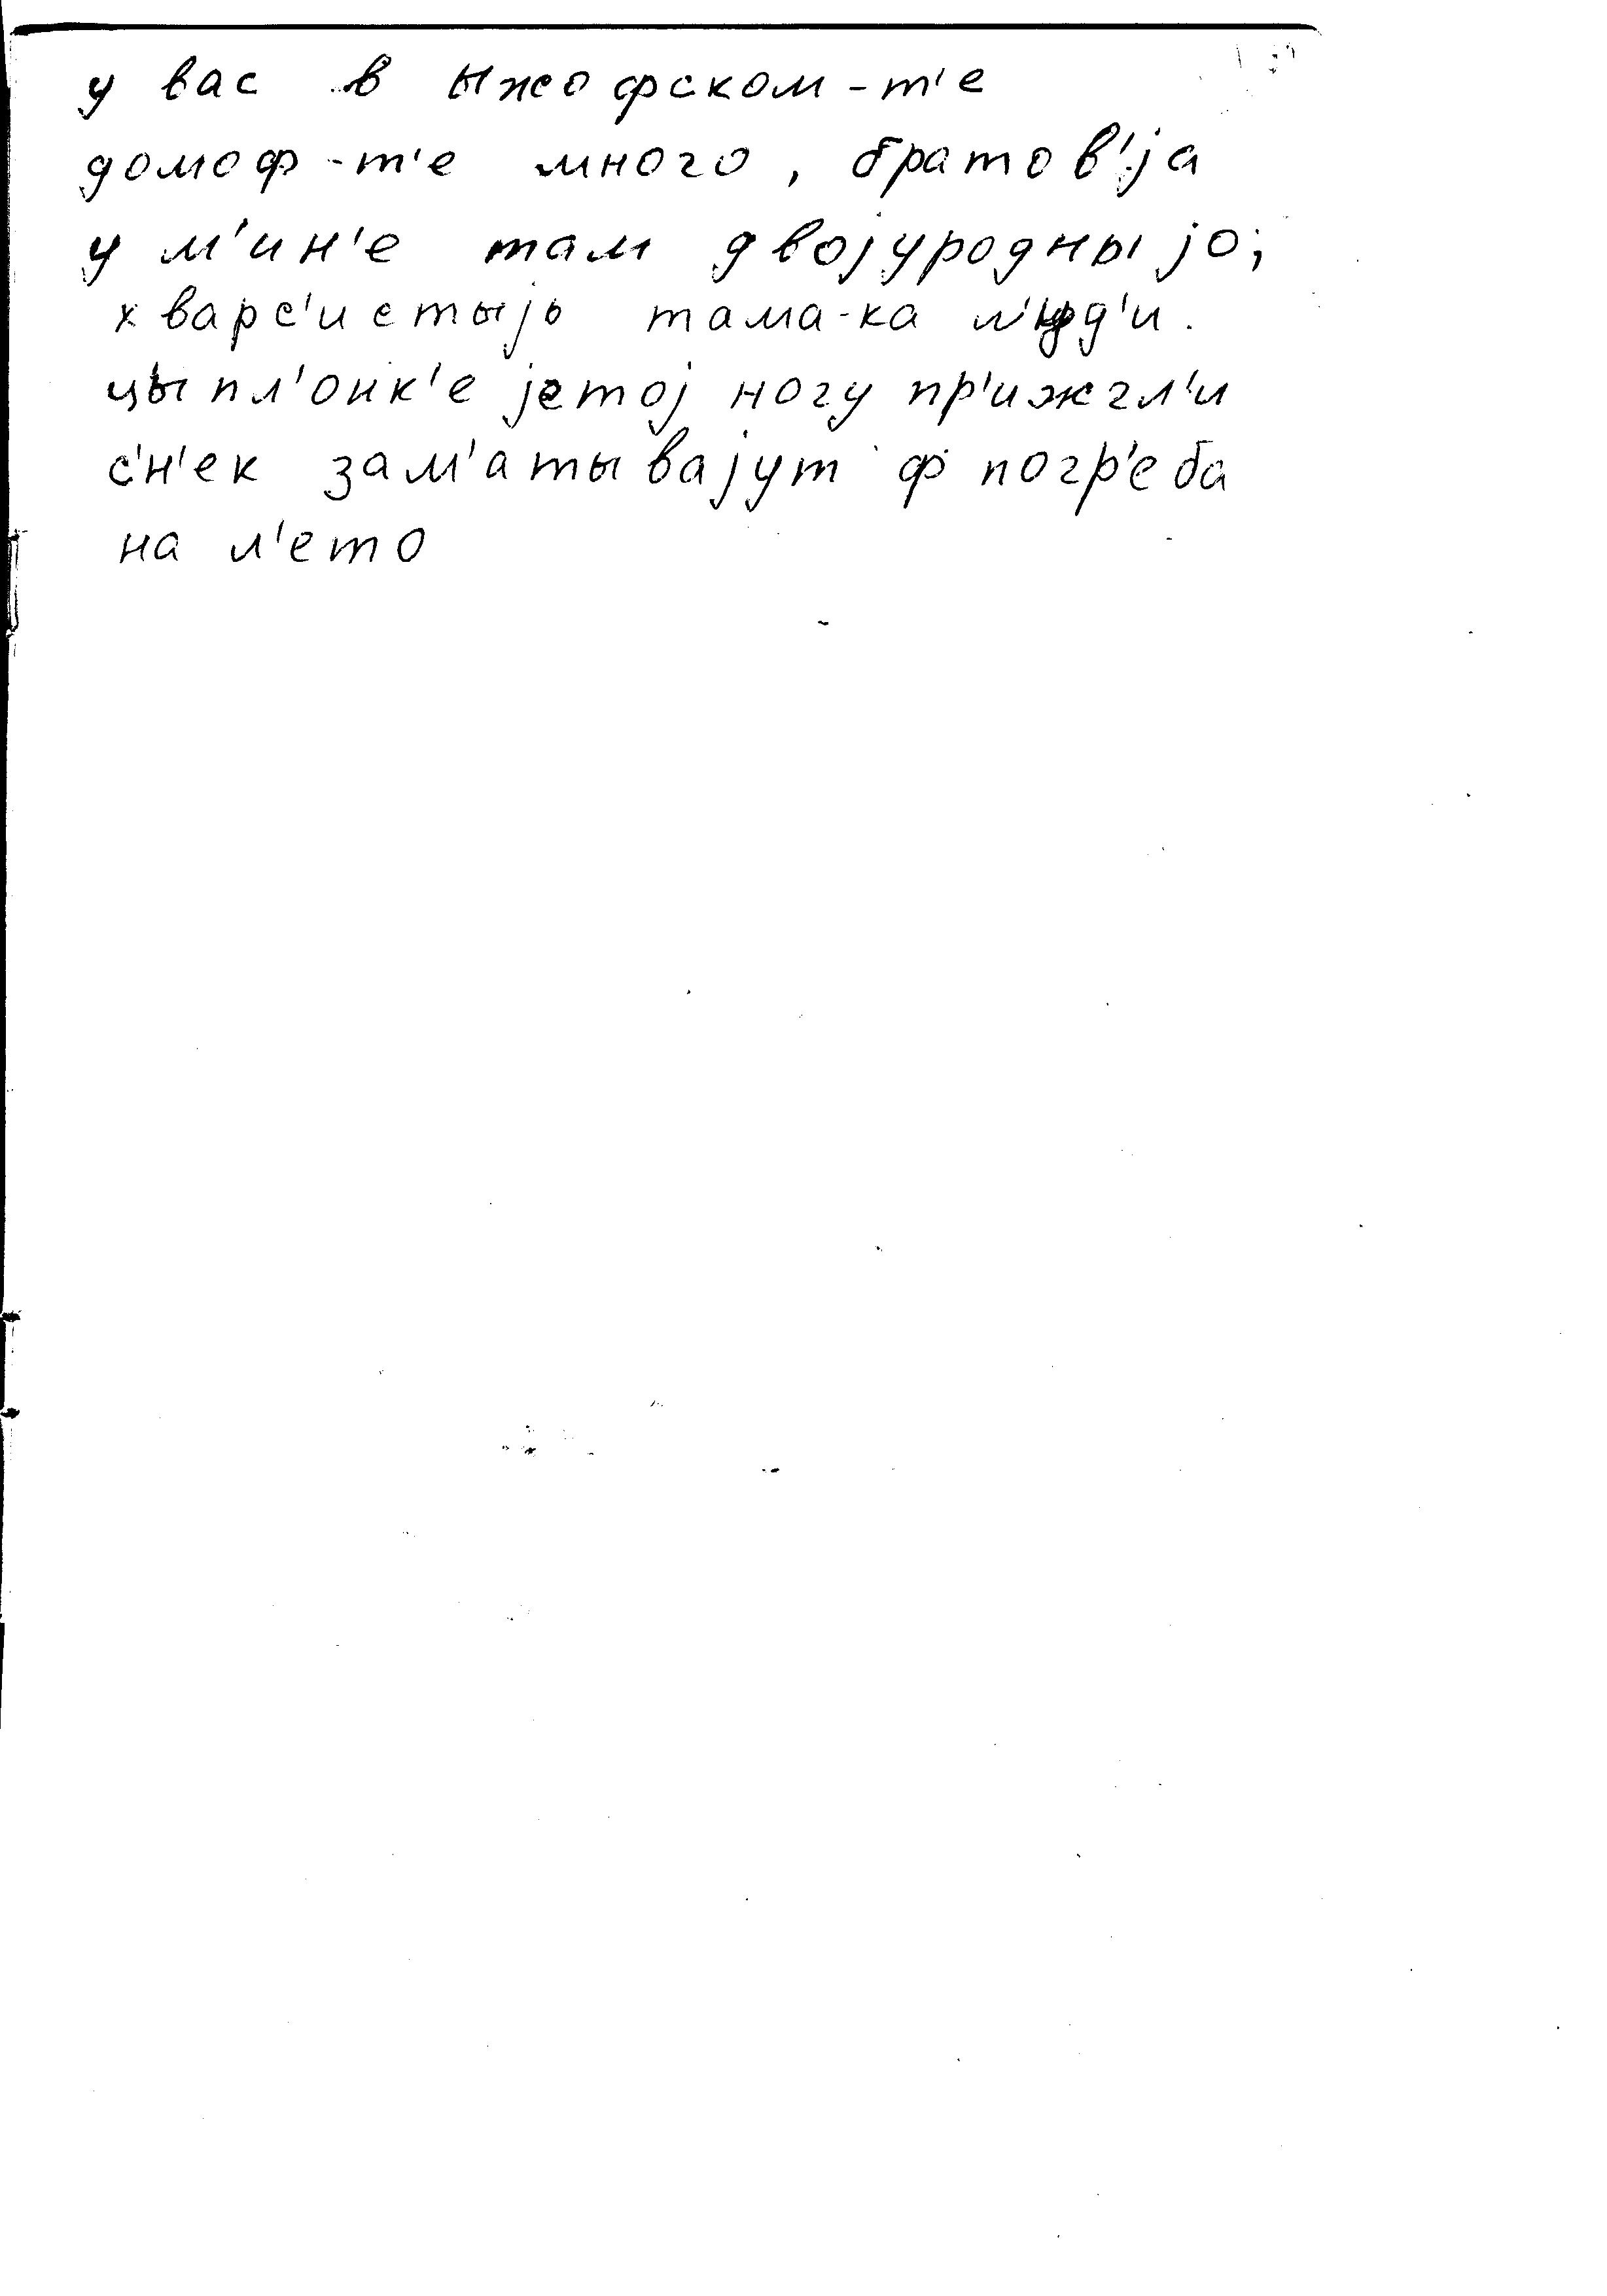 у вас в ыжофском-т'е
домоф-т'е много, братов'jа
у м'ин'е там двоjуродныjо;
хварс'истыjь тама-ка л'уд'и.
цыпл'онк'е jетоj ногу пр'ижгл'и
с'н'ек зам'атываjут ф погр'еба
на л'ето